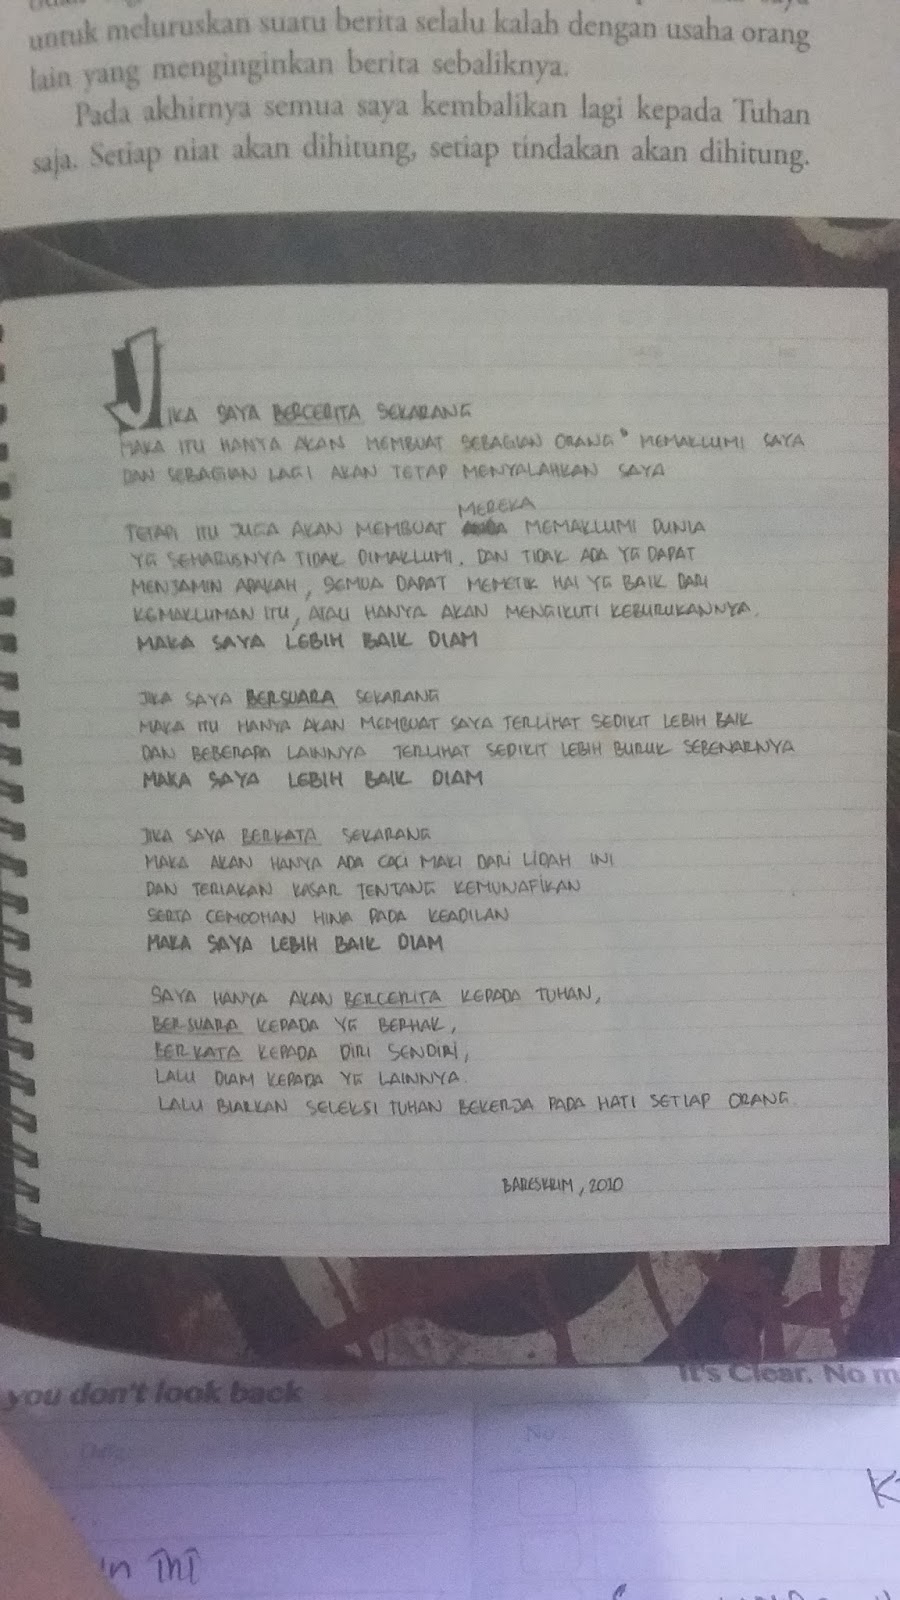 untuk meluruskan suatu berita selalu kalah dengan usaha orang
lain yang menginginkan berita sebaliknya.
Pada akhirnya semua saya kembalikan lagi kepada Tuhan
saja. Setiap niat akan dihitung, setiap tindakan akan dihitung.
JIKA SAYA BERCERITA SEKARANG
MAKA ITU HANYA AKAN MEMBUAT SEBAGIAN ORANG" MEMAKLUMI SAYA
DAN SEBAGIAN LAGI AKAN TETAP MENYALAHKAN SAYA
MEREKA
TETAPI ITU JUGA AKAN MEMBUAT MEMAKLUMI DUNIA
YG SEHARUSNYA TIDAK DIMAKLUMI. DAN TIDAK ADA YG DAPAT
MENJAMIN APAKAH, SEMUA DAPAT MEMETIK HAL YG BAIK DARI
KEMAKLUMAN ITU, ATAU HANYA AKAN MENGIKUTI KEBURUKANNYA.
MAKA SAYA LEBIH BAIK DIAM
JIKA SAYA BERSUARA SEKARANG
MAKA ITU HANYA AKAN MEMBUAT SAYA TERLIHAT SEDIKIT LEBIH BAIK
DAN BEBERAPA LAINNYA TERLIHAT SEDIKIT LEBIH BURUK SEBENARNYA
MAKA SAYA LEBIH BAIK DIAM
JIKA SAYA BERKATA SEKARANG
MAKA AKAN HANYA ADA CACI MAKI DARI LIDAH INI
DAN TERIAKAN KASAR TENTANG KEMUNAFIKAN
SERTA CEMOOHAN HINA PADA KEADILAN
MAKA SAYA LEBIH BAIK DIAM
SAYA HANYA AKAN BERCERITA KEPADA TUHAN,
BERSUARA KEPADA YG BERHAK,
BERKATA KEPADA DIRI SENDIRI,
LALU DIAM KEPADA YG LAINNYA.
LALU BIARKAN SELEKSI TUHAN BEKERJA PADA HATI SETIAP ORANG.
BARESKRIM, 2010
you don't look back
It's Clear. No
No
ini